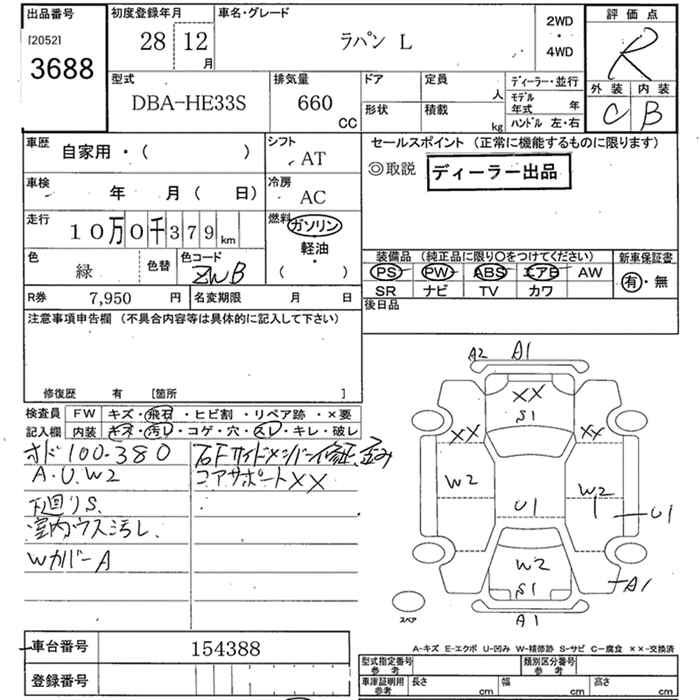 出品番号 初度登録年月 車名・グレード 2WD ・ 4WD 評価点
[2052]
3688 28 12 月 ラパン L R
型式 排気量 ドア 定員 人 ディーラー・並行 外装 内装
DBA-HE33S 660 CC 形状 積載 kg モデル年式 年 C B
ハンドル 左・右
車歴 自家用・( ) シフト AT セールスポイント (正常に機能するものに限ります)
◎取説 ディーラー出品
車検 年 月( 日) 冷房 AC
走行 10万0千379km 燃料 ガソリン
軽油
・
( )
色 緑 色替 色コード ZWB 装備品 (純正品に限り○をつけてください) 新車保証書
PS PW ABS エアB AW 有・無
R券 7,950 円 名変期限 月 日 SR ナビ TV カワ
後日品
注意事項申告欄 (不具合内容等は具体的に記入して下さい)
修復歴 有 [箇所 ]
検査員 FW キズ・飛石・ヒビ割・リペア跡・×要
記入欄 内装 キズ・汚レ・コゲ・穴・スレ・キレ・破レ
オド100.380 右Fサイドメンバー修正、歪み
A.U.W2 コアサポートXX
下廻りS.
室内ウス汚レ.
WカバーA
A2 A1
XX
S1
XX XX
W2 W2
U1 U1
W2
S1 A1
A1
スペア
A-キズ E-エクボ U-凹み W-補修跡 S-サビ C-腐食 ××-交換済
車台番号 154388
型式指定番号 参考 類別区分番号 参考
登録番号 車庫証明用 参考 長さ cm 幅 cm 高さ cm